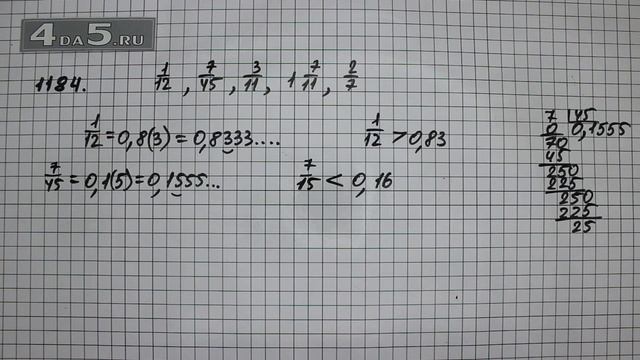 4DA5.RU
1184. 1/12, 7/45, 3/11, 1 7/11, 2/7
1/12 = 0,8(3) = 0,8333.... 1/12 > 0,83
7/45 = 0,1(5) = 0,1555... 7/15 < 0,16
7 | 45
0 0,1555
70
45
250
225
250
225
25